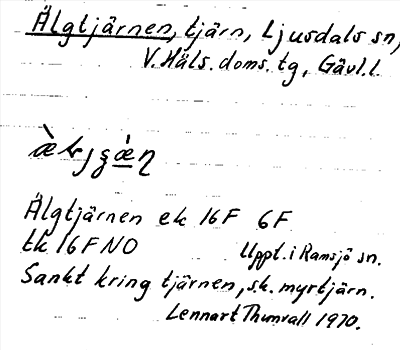 Älgtjärnen, tjärn, Ljusdals sn,
V. Häls. doms. tg, Gävl. l.
Älgtjärnen ek 16F 6F
tk 16F NO Uppt. i Ramsjö sn.
Sankt kring tjärnen, sk. myrtjärn.
Lennart Thunvall 1970.